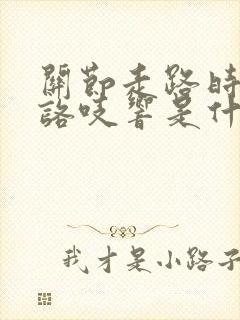 關節走路時
咯吱響是什
我才是小路子